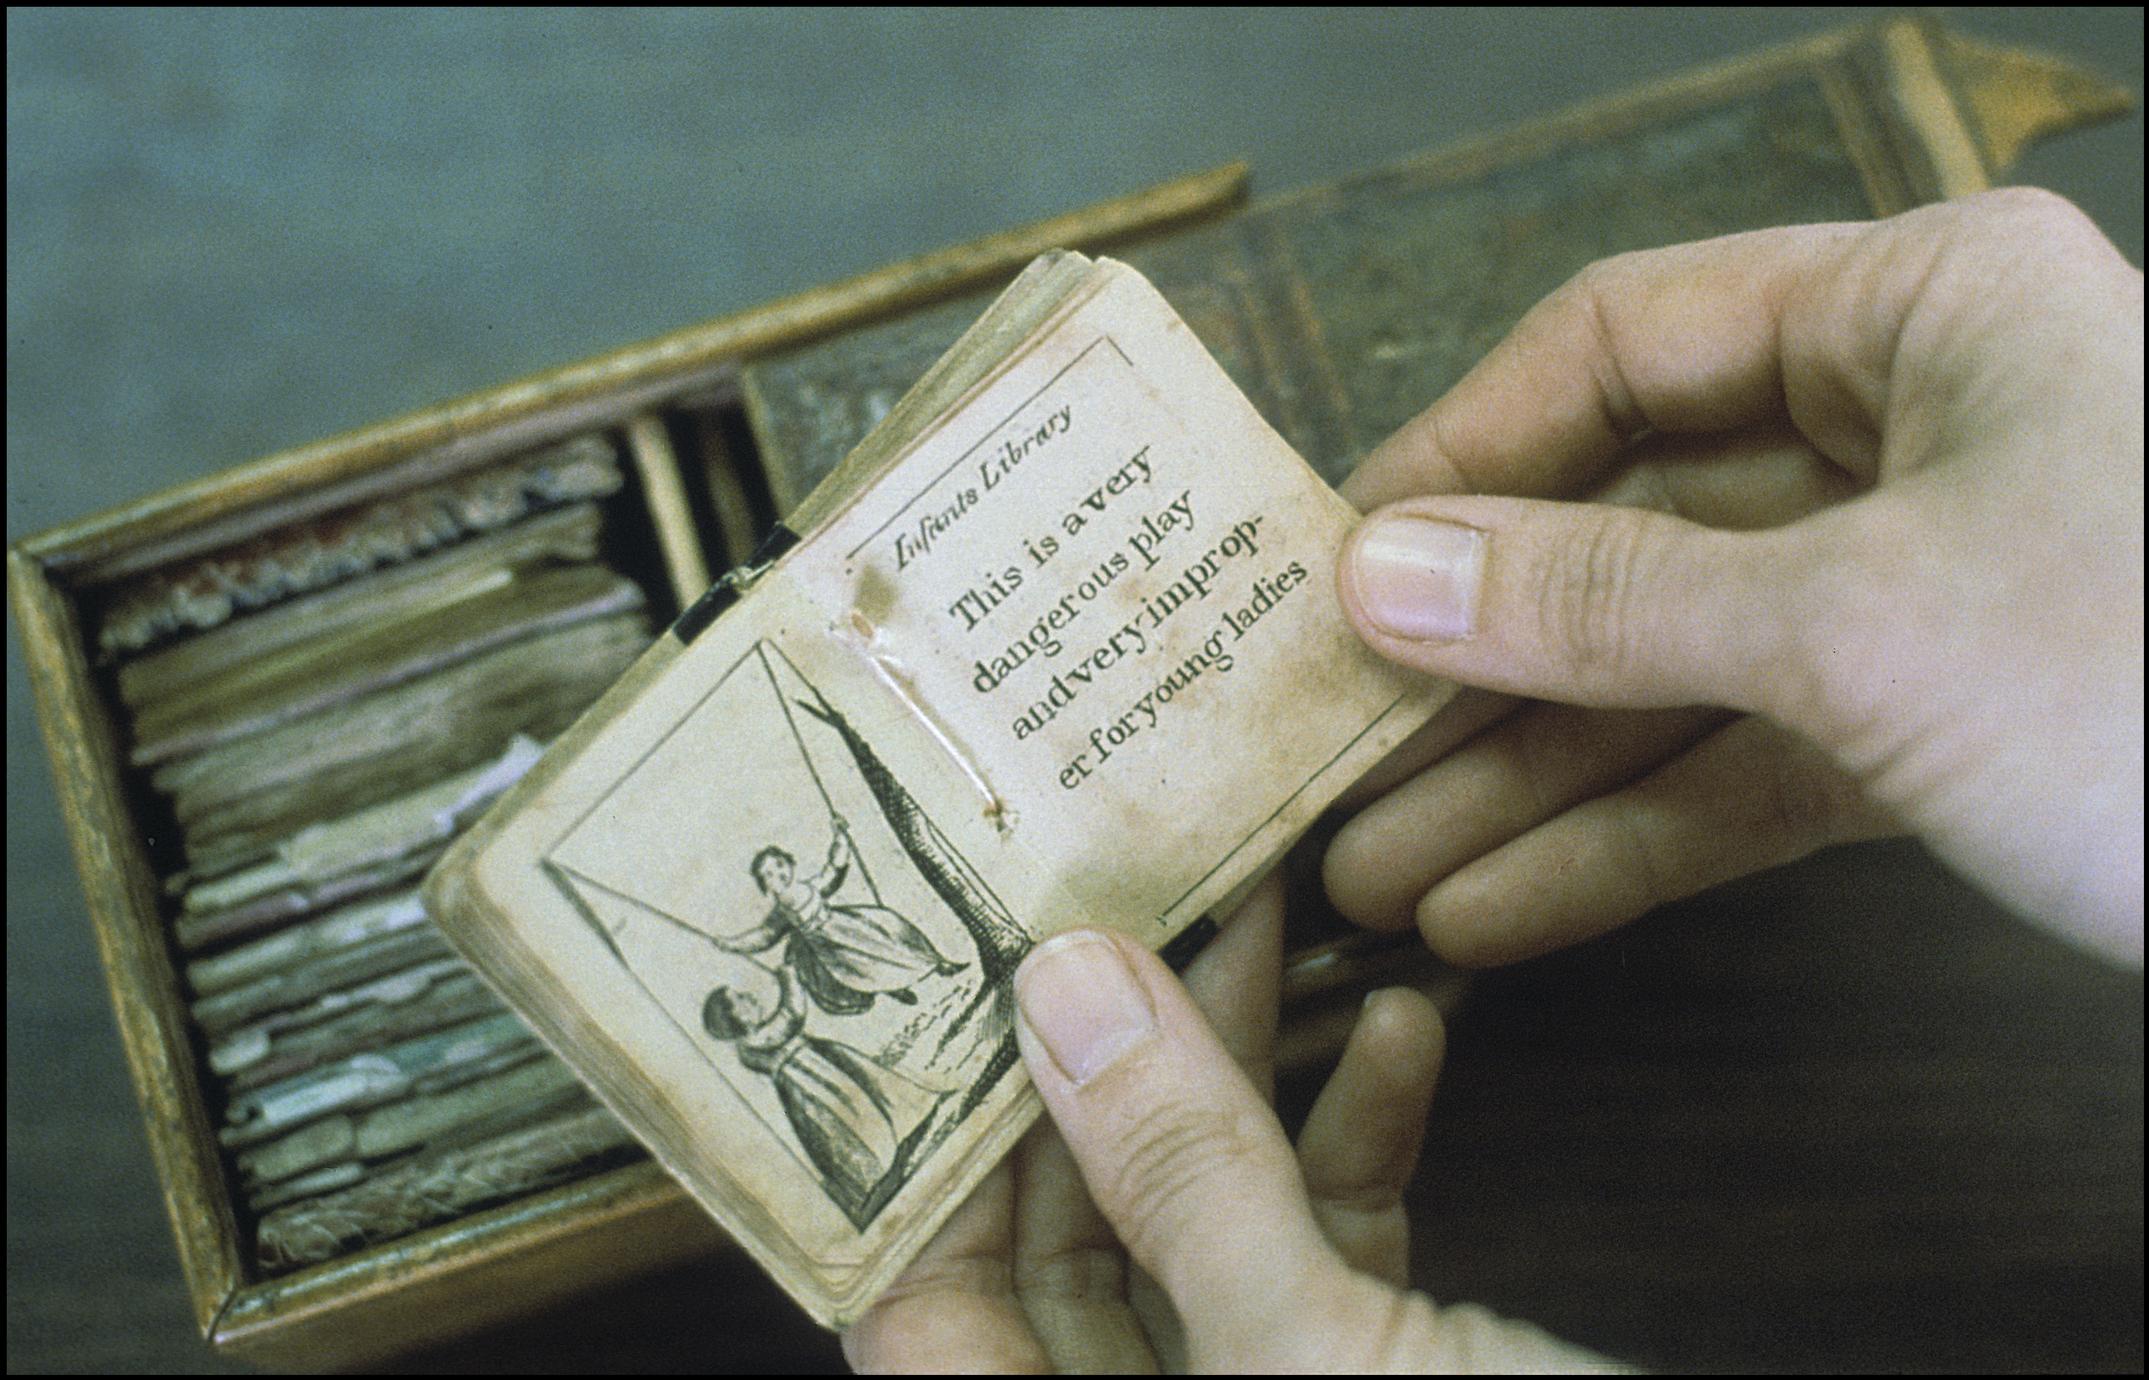 Infants Library
This is a very
dangerous play
and very improp-
er for young ladies